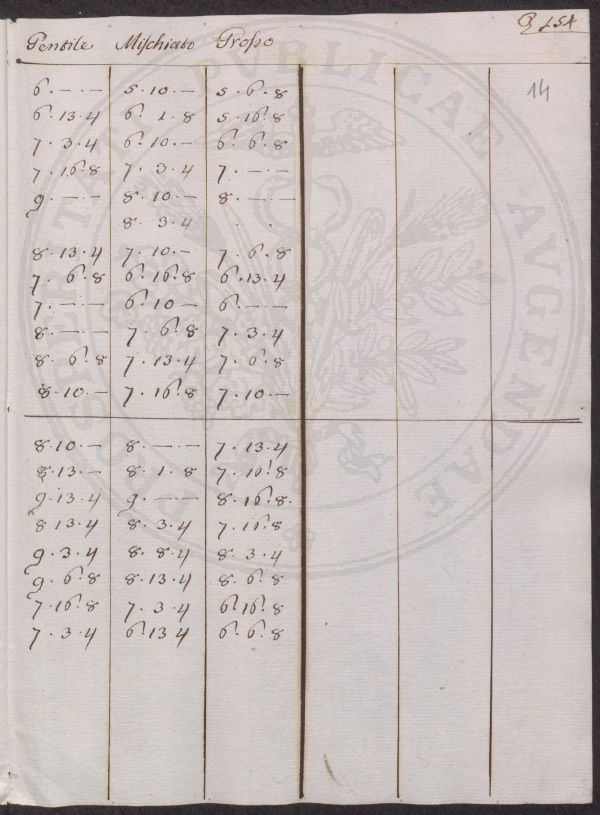 Gentile Mischiato Grosso
14
6 · — · — 5 · 10 · — 5 · 6 · 8
6 · 13 · 4 6 · 1 · 8 5 · 16 · 8
7 · 3 · 4 6 · 10 · — 6 · 6 · 8
7 · 16 · 8 7 · 3 · 4 7 · — · —
9 · — · — 8 · 10 · — 8 · — · —
8 · 3 · 4 · ·
8 · 13 · 4 7 · 10 · — 7 · 6 · 8
7 · 6 · 8 6 · 16 · 8 6 · 13 · 4
7 · — · — 6 · 10 — 6 · — · —
8 · — · — 7 · 6 · 8 7 · 3 · 4
8 · 6 · 8 7 · 13 · 4 7 · 6 · 8
8 · 10 · — 7 · 16 · 8 7 · 10 · —
8 · 10 · — 8 · — · — 7 · 13 · 4
8 · 13 · — 8 · 1 · 8 7 · 16 · 8
9 · 13 · 4 9 · — · — 8 · 16 · 8
8 13 · 4 8 · 3 · 4 7 · 16 · 8
9 · 3 · 4 8 · 8 · 4 8 · 3 · 4
9 · 6 · 8 8 · 13 · 4 8 · 6 · 8
7 · 16 · 8 7 · 3 · 4 6 · 16 · 8
7 · 3 · 4 6 · 13 · 4 6 · 6 · 8
PROSPERITATI PVBLICAE AVGENDAE